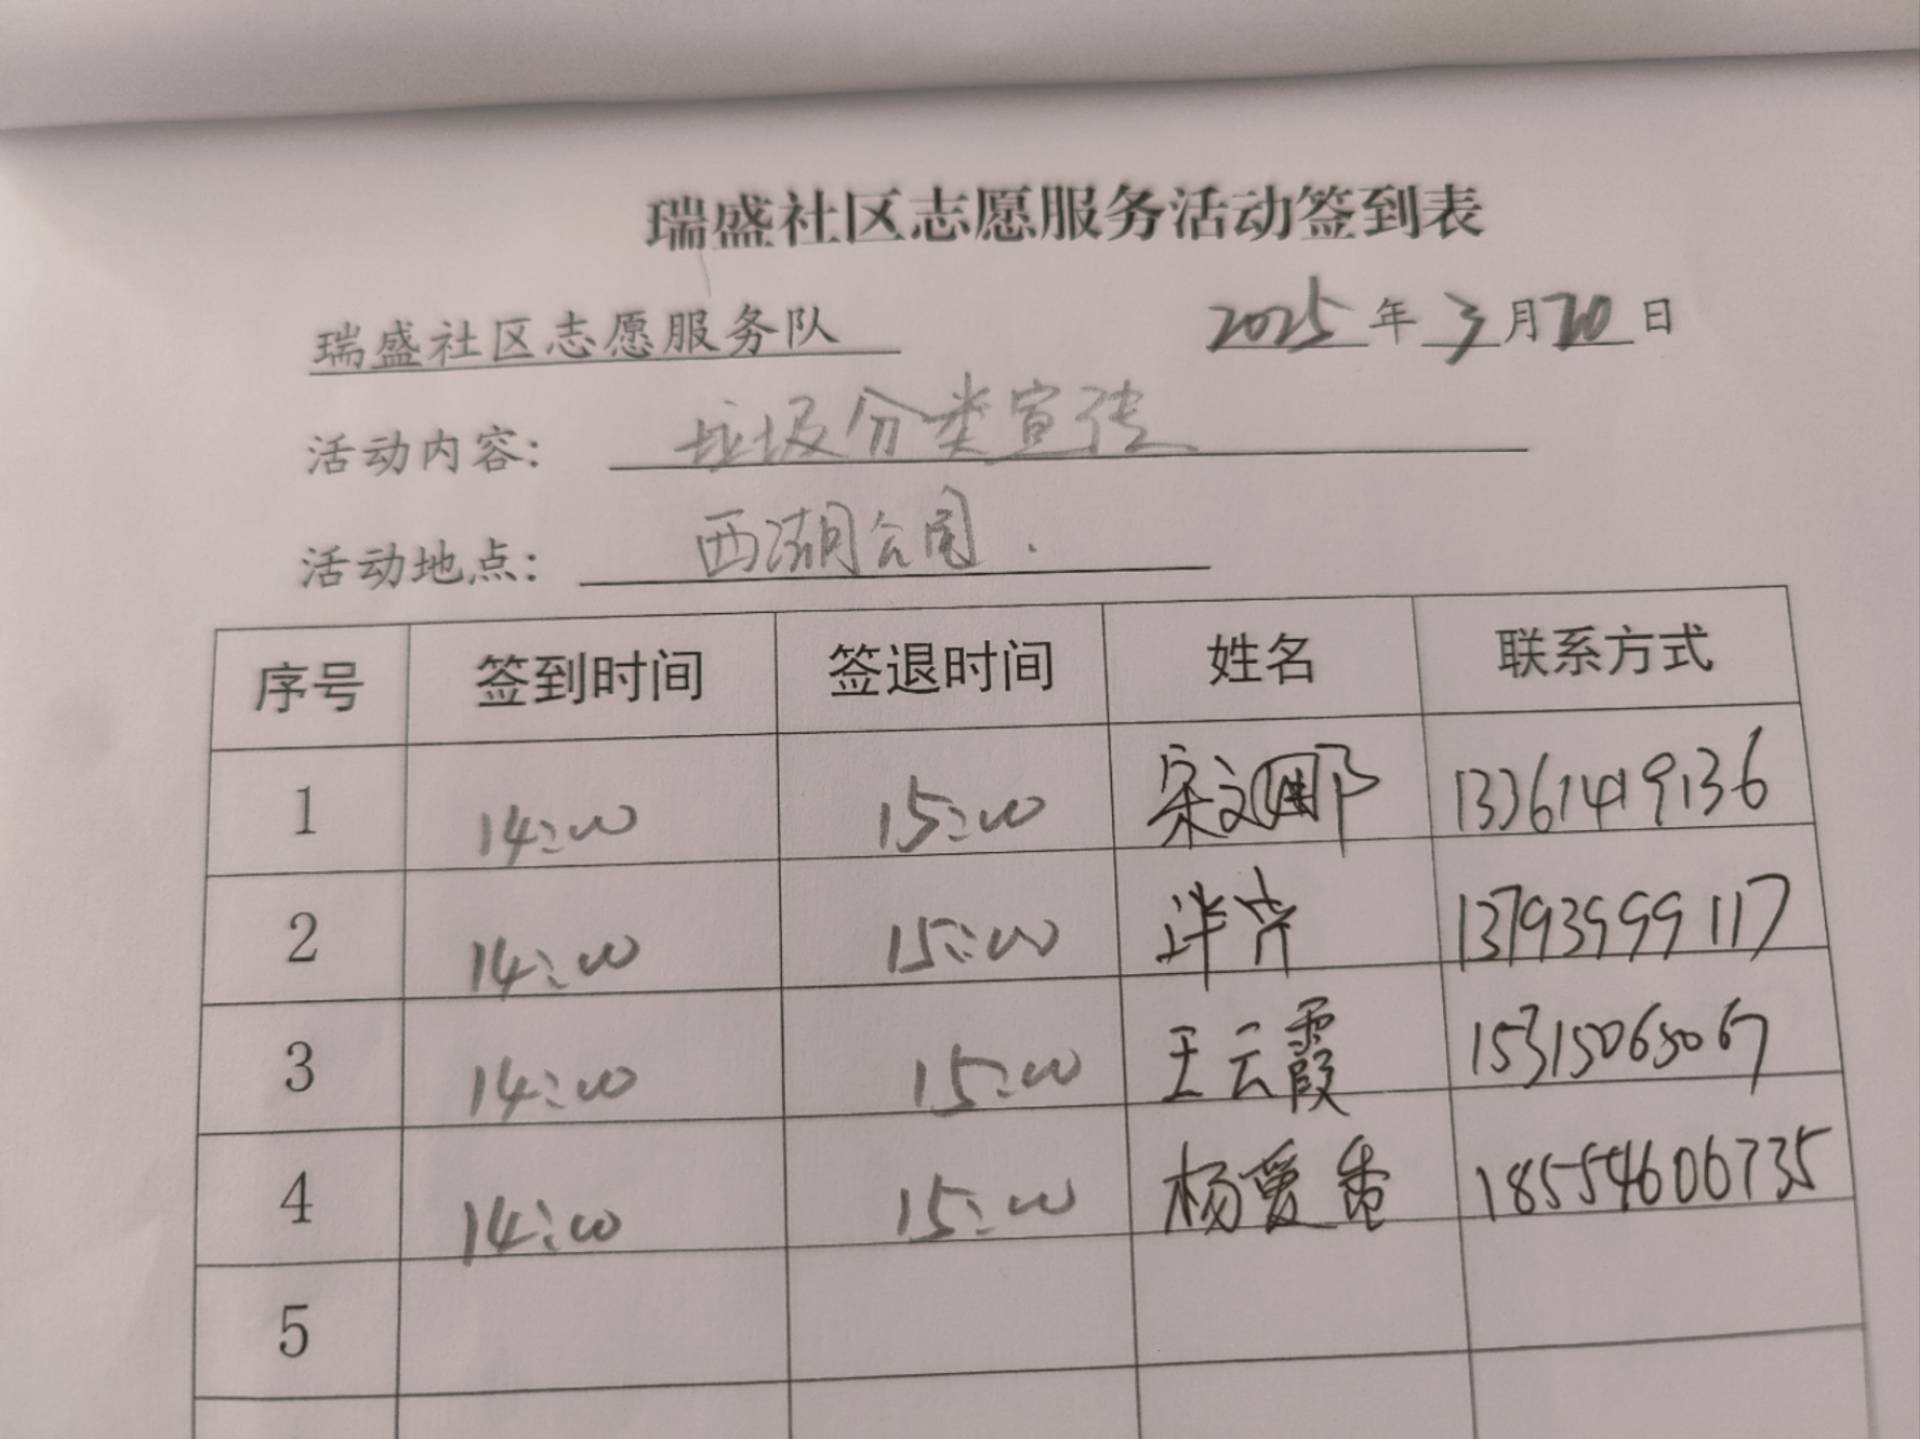 瑞盛社区志愿服务活动签到表
瑞盛社区志愿服务队 2025年3月20日
活动内容: 垃圾分类宣传
活动地点: 西湖公园.
序号 签到时间 签退时间 姓名 联系方式
1 14:00 15:00 宋文 13361419136
2 14:00 15:00 13793999117
3 14:00 15:00 王云霞 15315065067
4 14:00 15:00 杨爱香 18554606735
5